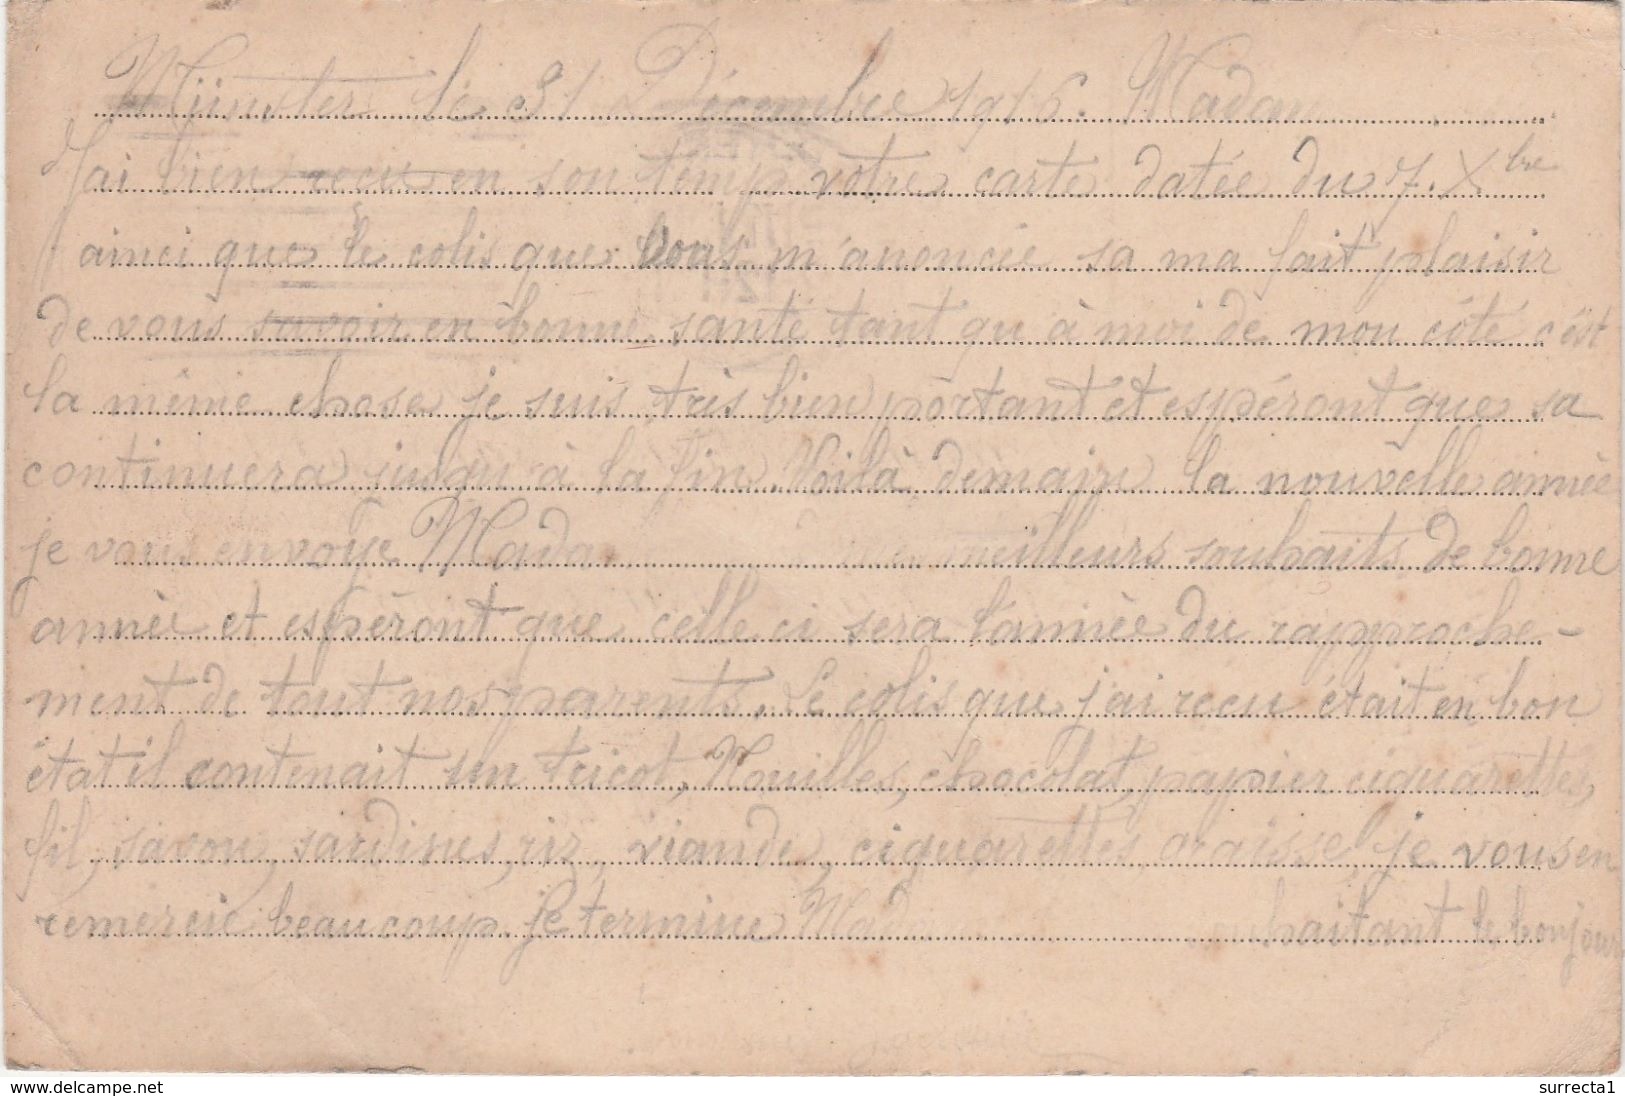 Münster le 31 Décembre 1916. Madam
J'ai bien recu en son temp votre carte datée du 7. Xbre
ainci que le colis que vous m'anoncie sa ma fait plaisir
de vous savoir en bonne santé tant qu à moi de mon côté c'est
la même chose je suis très bien portant et espéront que sa
continuera jusqu'à la fin. Voilà demain la nouvelle année
je vous envoye Mada meilleurs souhaits de bonne
année et espéront que celle ci sera l'année du rapproche-
ment de tout nos parents. Le colis que j'ai recu était en bon
état il contenait un tricot, Nouilles, chocolat, papier ciguarettes,
fil, savon, sardines, riz, viande, ciguarettes, graisse, je vous en
remercie beaucoup. Je termine Mada haitant le bonjour
www.delcampe.net
surrecta1